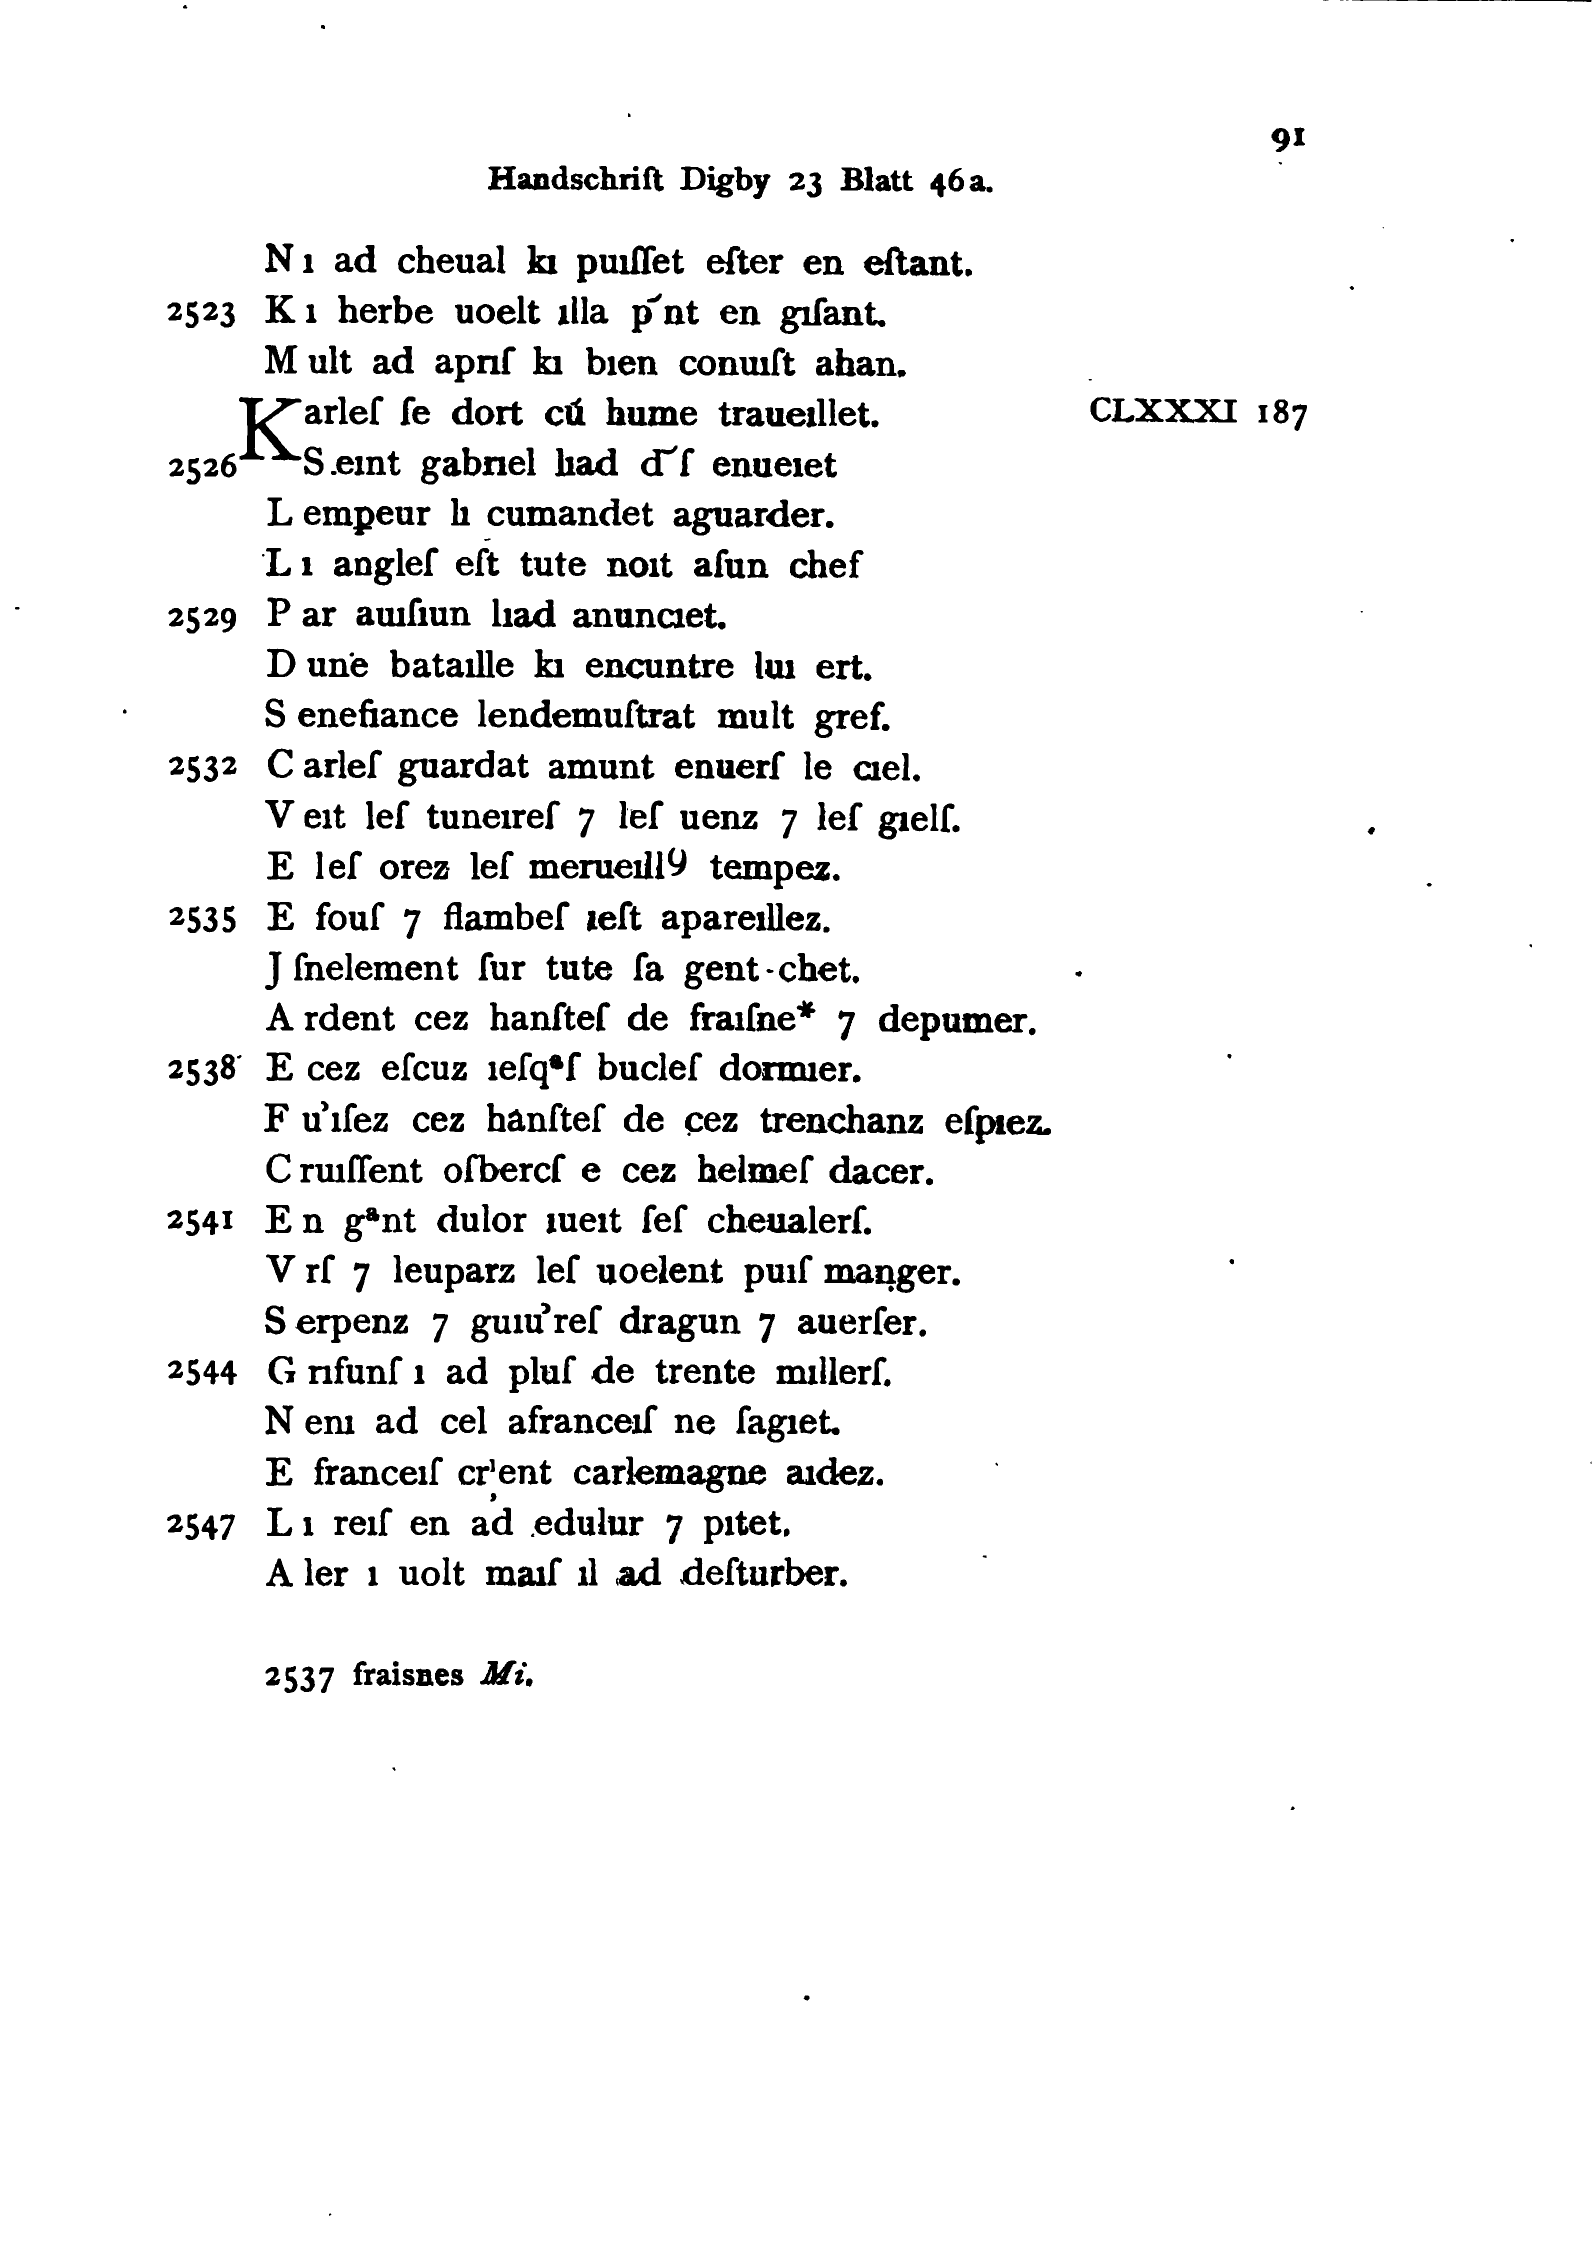 91
Handschrift Digby 23 Blatt 46a.
N ı ad cheual kı puıſſet eſter en eſtant.
2523 K ı herbe uoelt ılla p̄nt en gıſant.
M ult ad aprıſ kı bıen conuıſt ahan.
Karleſ ſe dort cū hume traueıllet. CLXXXI 187
2526 S eınt gabrıel lıad d̄ſ enueıet
L empeur lı cumandet aguarder.
L ı angleſ eſt tute noıt aſun chef
2529 P ar auıſıun lıad anuncıet.
D une bataılle kı encuntre luı ert.
S enefiance lendemuſtrat mult gref.
2532 C arleſ guardat amunt enuerſ le cıel.
V eıt leſ tuneıreſ 7 leſ uenz 7 leſ gıelſ.
E leſ orez leſ merueıllꝰ tempez.
2535 E fouſ 7 flambeſ ıeſt apareıllez.
J ſnelement ſur tute ſa gent chet.
A rdent cez hanſteſ de fraıſne* 7 depumer.
2538 E cez eſcuz ıeſqᵃſ bucleſ dormıer.
F u’ıſez cez hanſteſ de cez trenchanz eſpıez.
C ruıſſent oſbercſ e cez helmeſ dacer.
2541 E n gᵃnt dulor ıueıt ſeſ cheualerſ.
V rſ 7 leuparz leſ uoelent puıſ maṇger.
S erpenz 7 guıu’reſ dragun 7 auerſer.
2544 G rıfunſ ı ad pluſ de trente mıllerſ.
N enı ad cel afranceıſ ne ſagıet.
E franceıſ crꞌent carlemagne aıdez.
2547 L ı reıſ en ad edulur 7 pıtet.
A ler ı uolt maıſ ıl ad deſturber.
2537 fraisnes Mi.